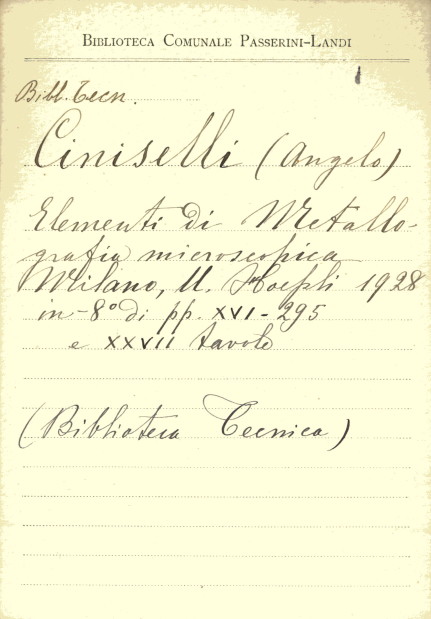 BIBLIOTECA COMUNALE PASSERINI-LANDI
Bibl. Tecn.
Ciniselli (Angelo)
Elementi di Metallo-
grafia microscopica
Milano, U. Hoepli 1928
in-8° di pp. XVI-295
e XXVII tavole
(Biblioteca Tecnica)